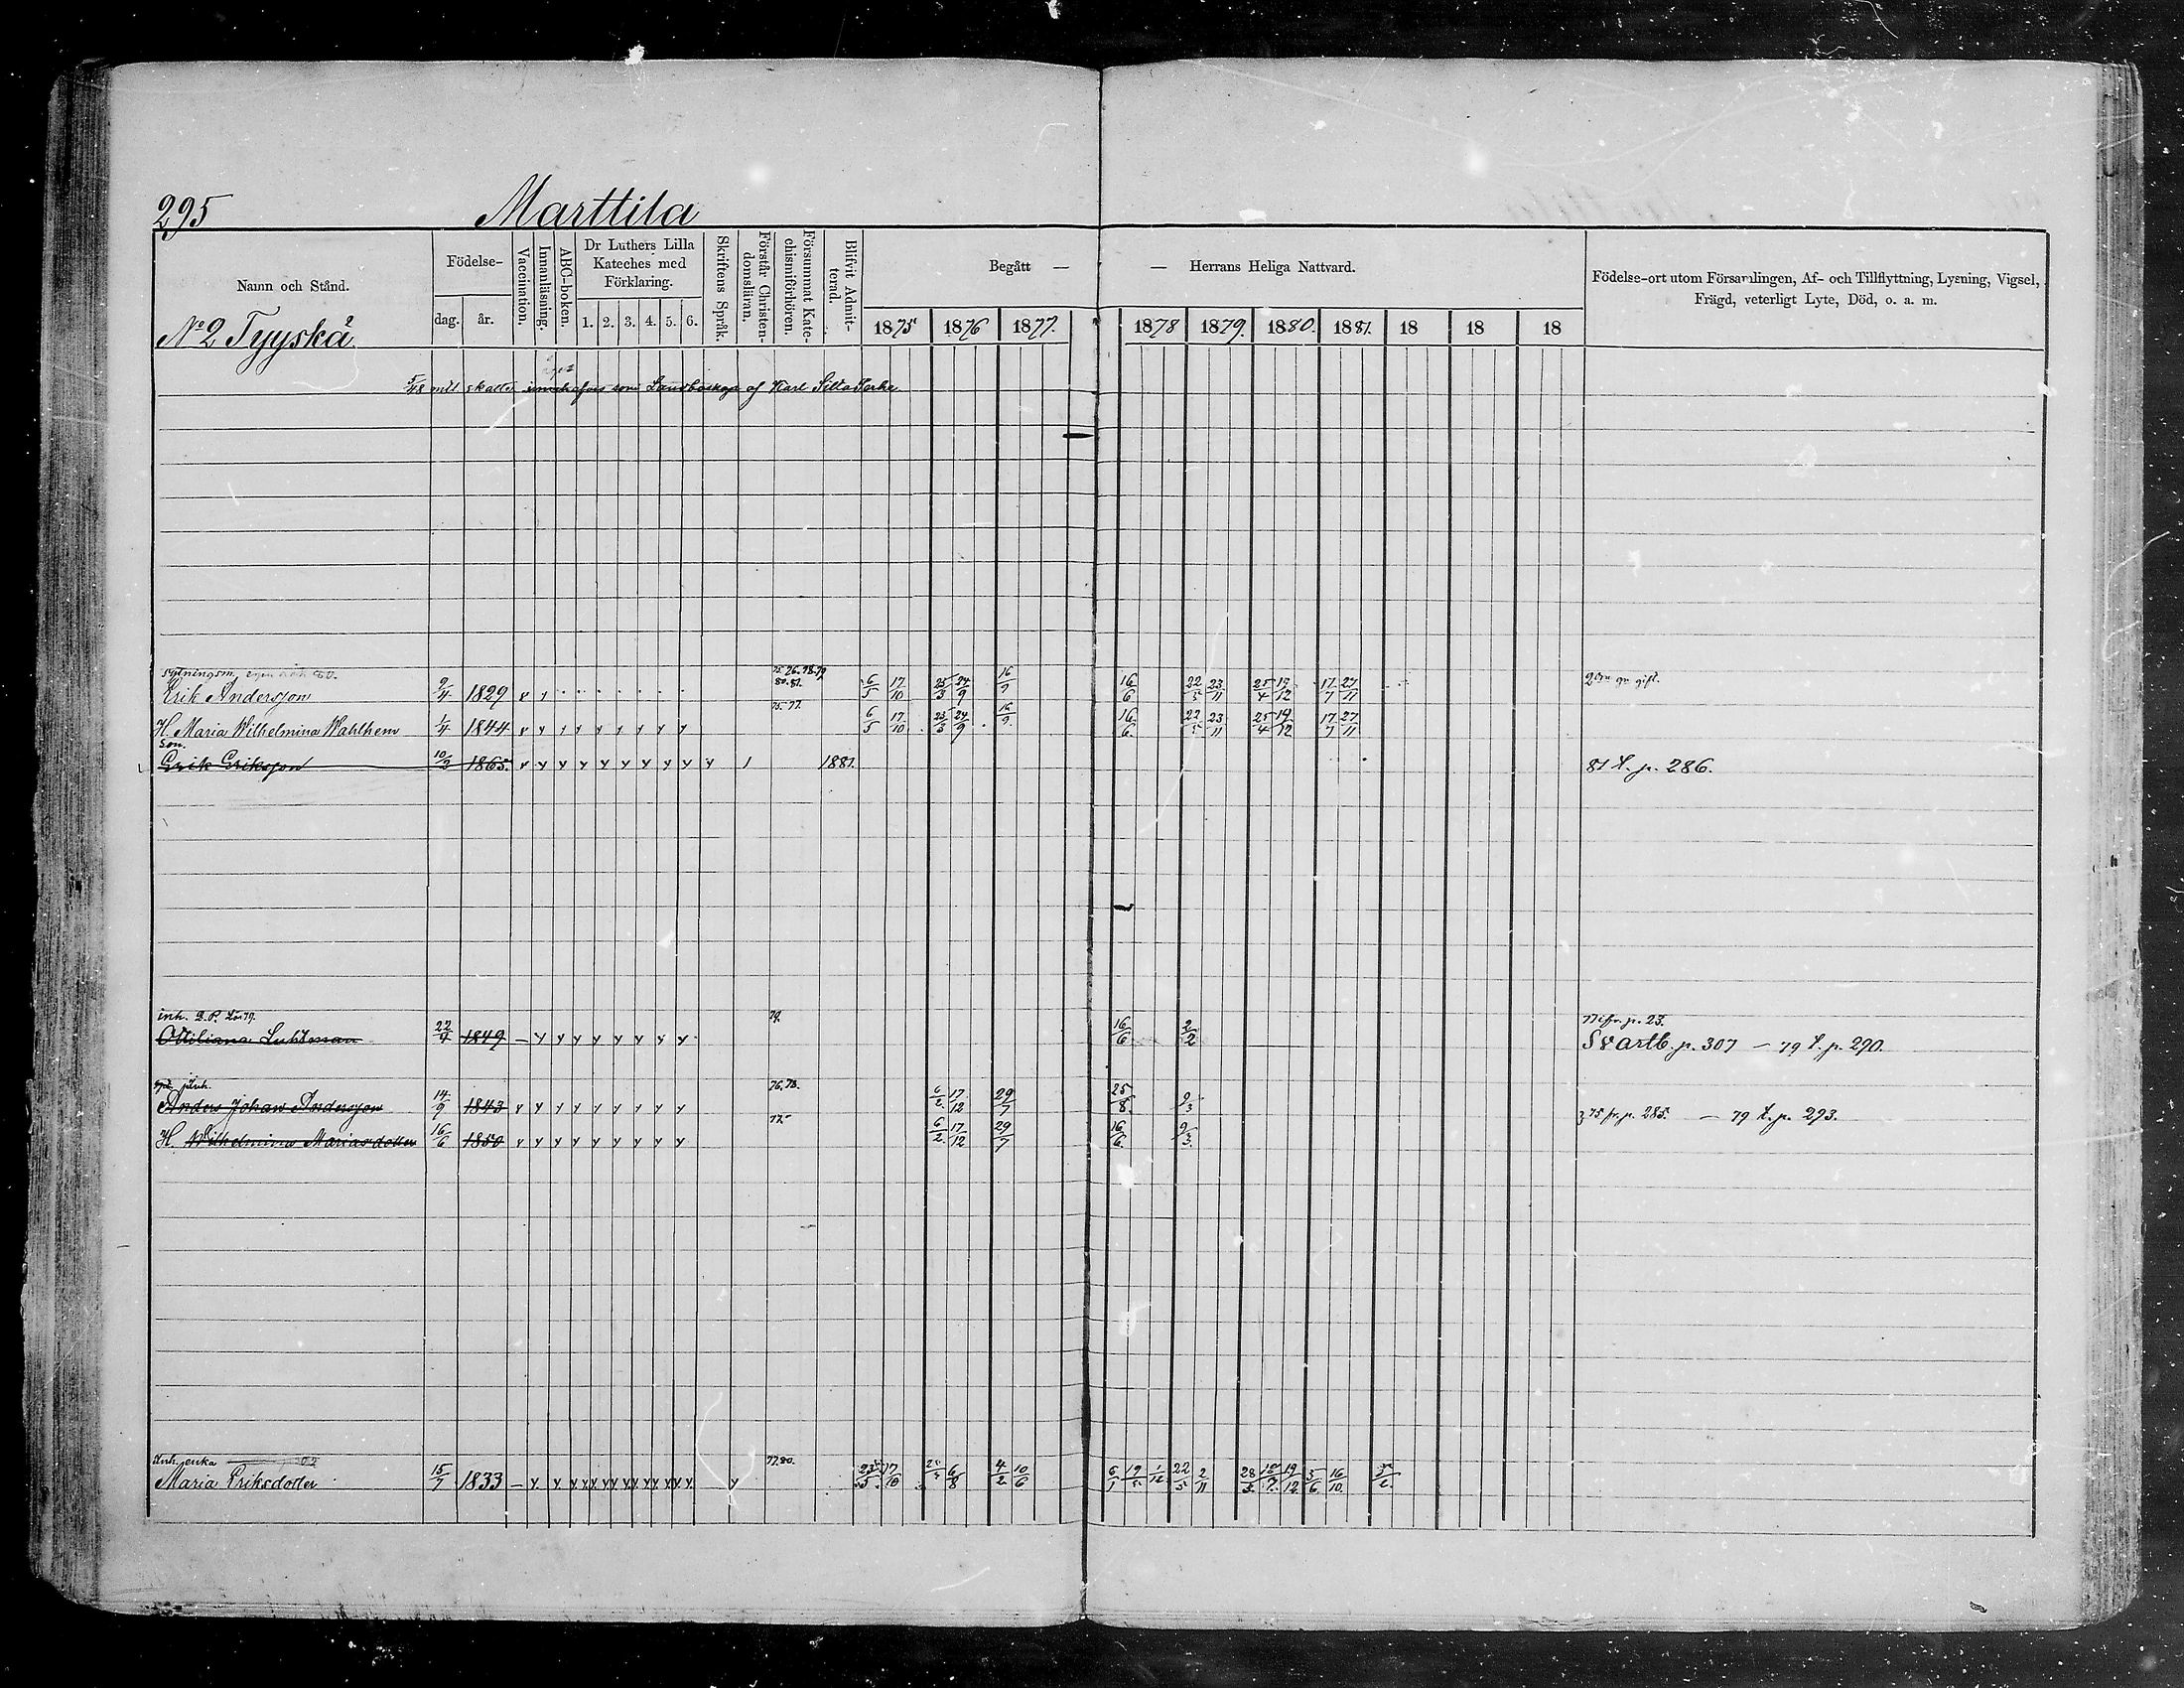 295 Marttila
Namn och Stånd.
Födelse-
dag. år.
Vaccination.
Innanläsning.
ABC-boken.
Dr Luthers Lilla
Kateches med
Förklaring.
1. 2. 3. 4. 5. 6.
Skriftens Språk.
Förstår Christen-
domsläran.
Försummat Kate-
chismiförhören.
Blifvit Admit-
terad.
Begått — — Herrans Heliga Nattvard.
1875 1876 1877. 1878 1879. 1880. 1881. 18 18 18
Födelse-ort utom Församlingen, Af- och Tillflyttning, Lysning, Vigsel,
Frägd, veterligt Lyte, Död, o. a. m.
No 2 Tyyskä
5/48 mtl skatte som Landbonde af Karl
sytningsm.
75. 76. 78. 79
80. 81.
Erik Andersson 9/4 1829 6/5 17/10 25/3 24/9 16/7 16/6 22/5 23/11 25/4 19/12 17/7 27/11 gift.
75. 77.
H. Maria Wilhelmina Wahlhem 1/4 1844 y y y y y y y y y 6/5 17/10 25/3 24/9 16/9. 16/6 22/5 23/11 25/4 19/12 17/7 27/11
son.
Erik Eriksson 10/3 1865. y y y y y y y y y y 1 1881. 81 t. p. 286.
inh. 79.
Luhtman 22/4 1849 — y y y y y y y y 16/6 2/2 77 ifr. p. 23.
Svartb. p. 307 — 79 t. p. 290.
inh. 76. 78.
Anders Johan Andersson 14/9 1843 y y y y y y y y y 6/2 17/12 29/7 25/8 9/3 75 fr. p. 285. — 79 t. p. 293.
77.
H. Wilhelmina Mariasdotter 16/6 1850 y y y y y y y y y 6/2 17/12 29/7 16/6 9/3.
Inh. enka 77. 80.
Maria Eriksdotter 15/7 1833 — y y y y y y y y y y y y y y y 23/5 17/10 6/8 4/2 10/6 6/1 19/5 1/12 22/5 2/11 28/3 18/7 19/12 5/6 16/10. 5/2.